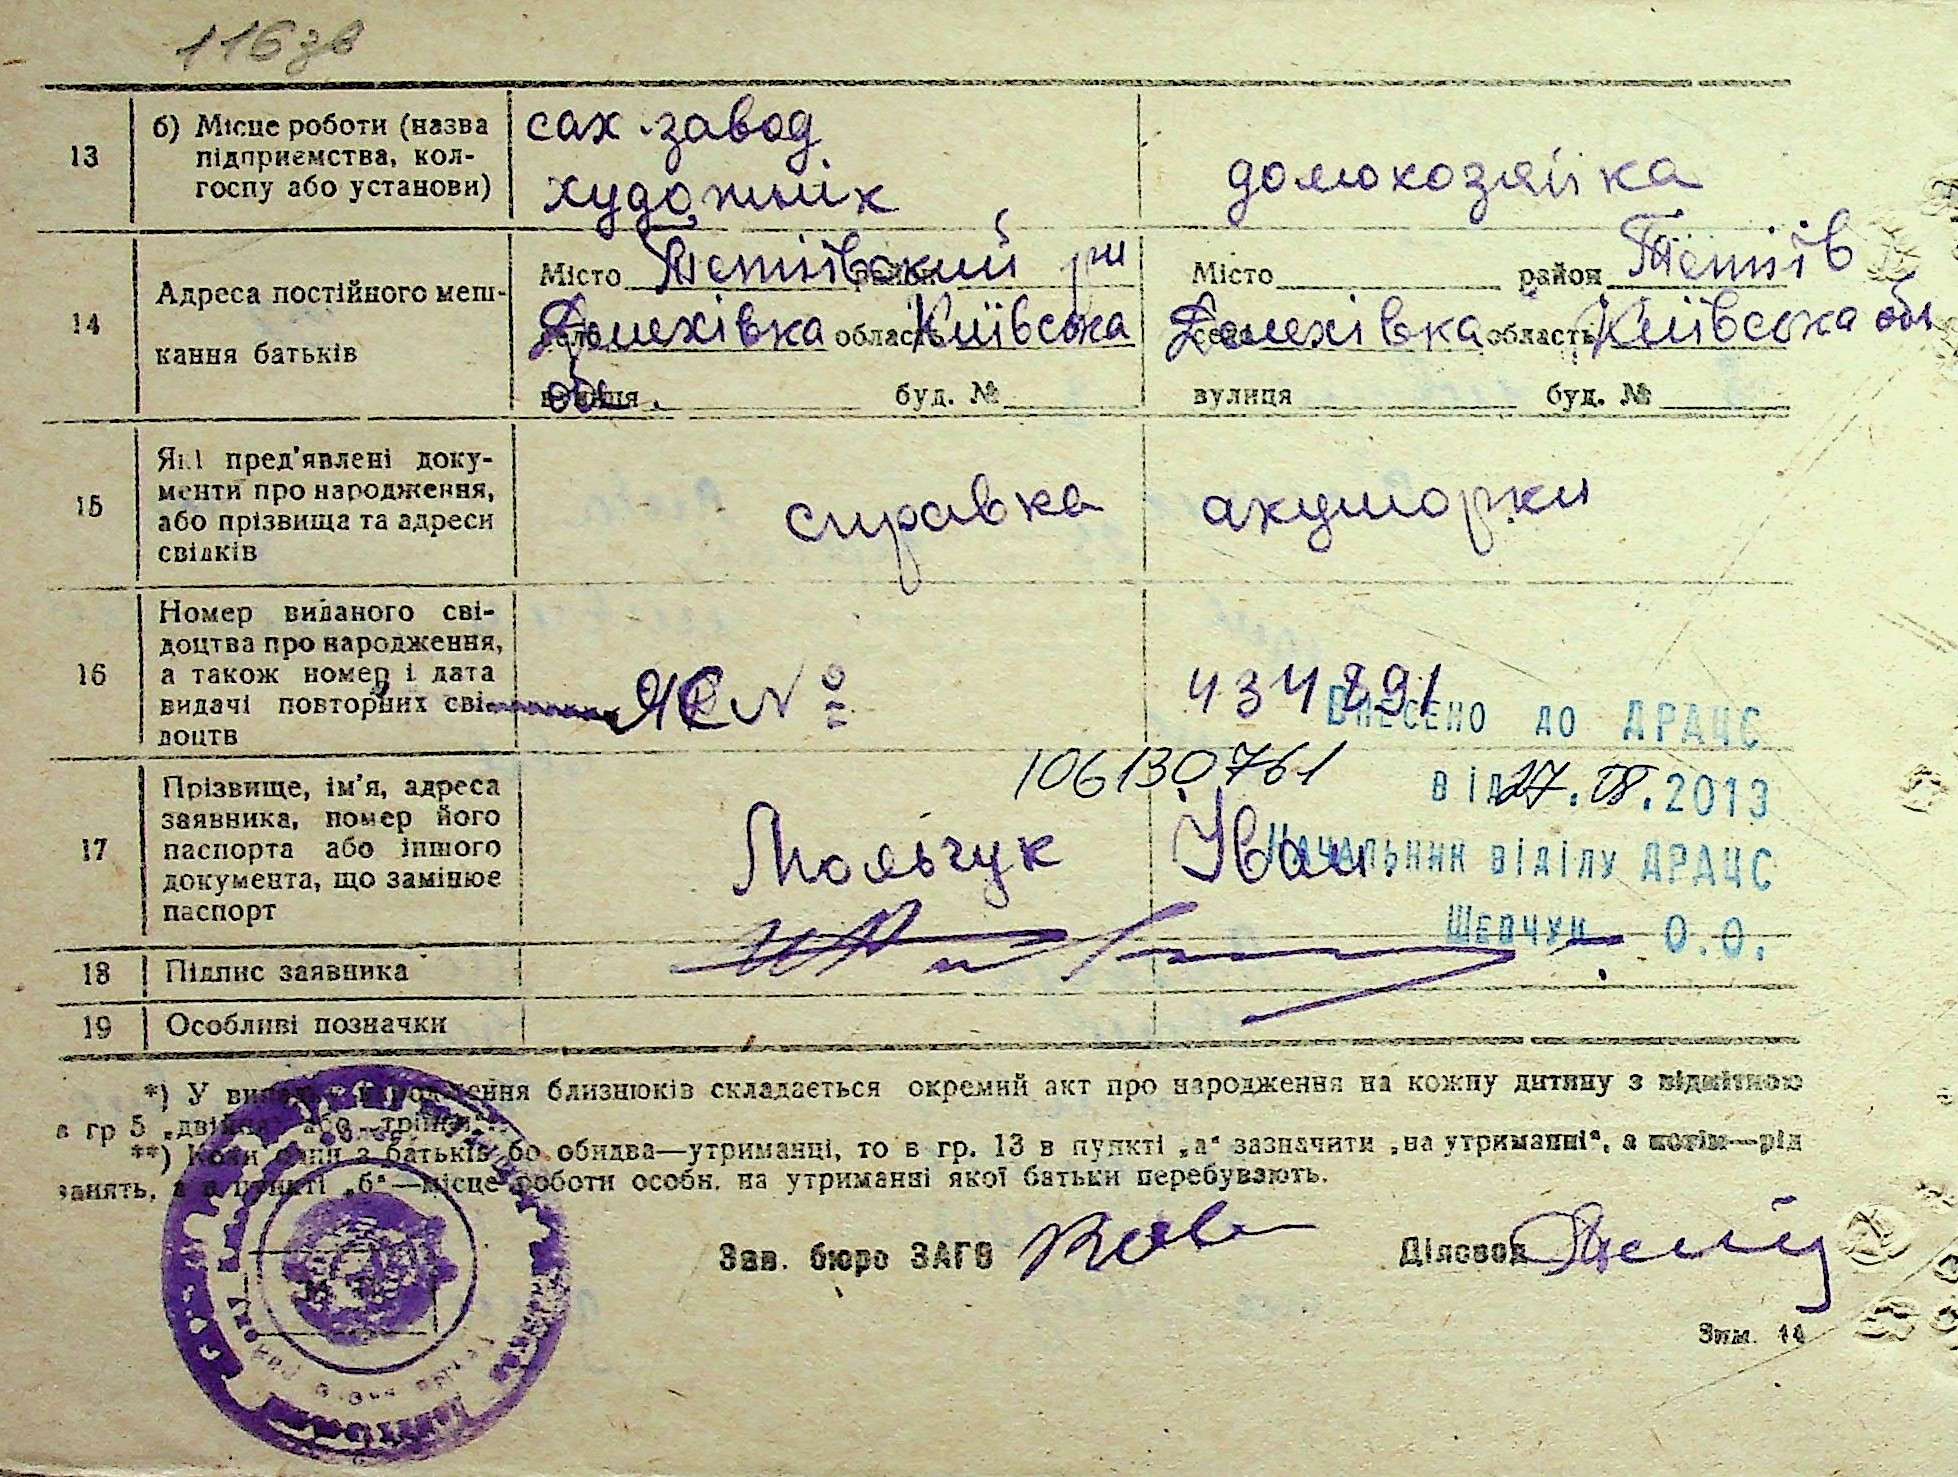 116зв
13
б) Місце роботи (назва
підприємства, кол-
госпу або установи)
сах. завод
художнік
домохозяйка
14
Адреса постійного меш-
кання батьків
Місто Тетіївський район рн
село Дзюнехівка область Київська
обл.
вулиця буд. №
Місто район Тетіїв
село область Київська обл
вулиця буд. №
15
Які пред'явлені доку-
менти про народження,
або прізвища та адреси
свідків
справка акушорки
16
Номер виданого сві-
доцтва про народження,
а також номер і дата
видачі повторних сві-
доцтв
ЯЄ № 434891
ВНЕСЕНО ДО ДРАЦС
106130761
ВІД 27.08.2013
17
Прізвище, ім'я, адреса
заявника, номер його
паспорта або іншого
документа, що замінює
паспорт
Мольчук Іван.
НАЧАЛЬНИК ВІДІЛУ ДРАЦС
ШЕВЧУК О.О.
18
Підпис заявника
19
Особливі позначки
*) У випадку народження близнюків складається окремий акт про народження на кожну дитину з відміткою
в гр 5 „двійня" або „трійня".
**) Коли один з батьків бо обидва—утриманці, то в гр. 13 в пункті „а" зазначити „на утриманні", а потім—рід
занять, а в пункті „б"—місце роботи особи, на утриманні якої батьки перебувають.
Зав. бюро ЗАГС
Діловод
Зам. 44